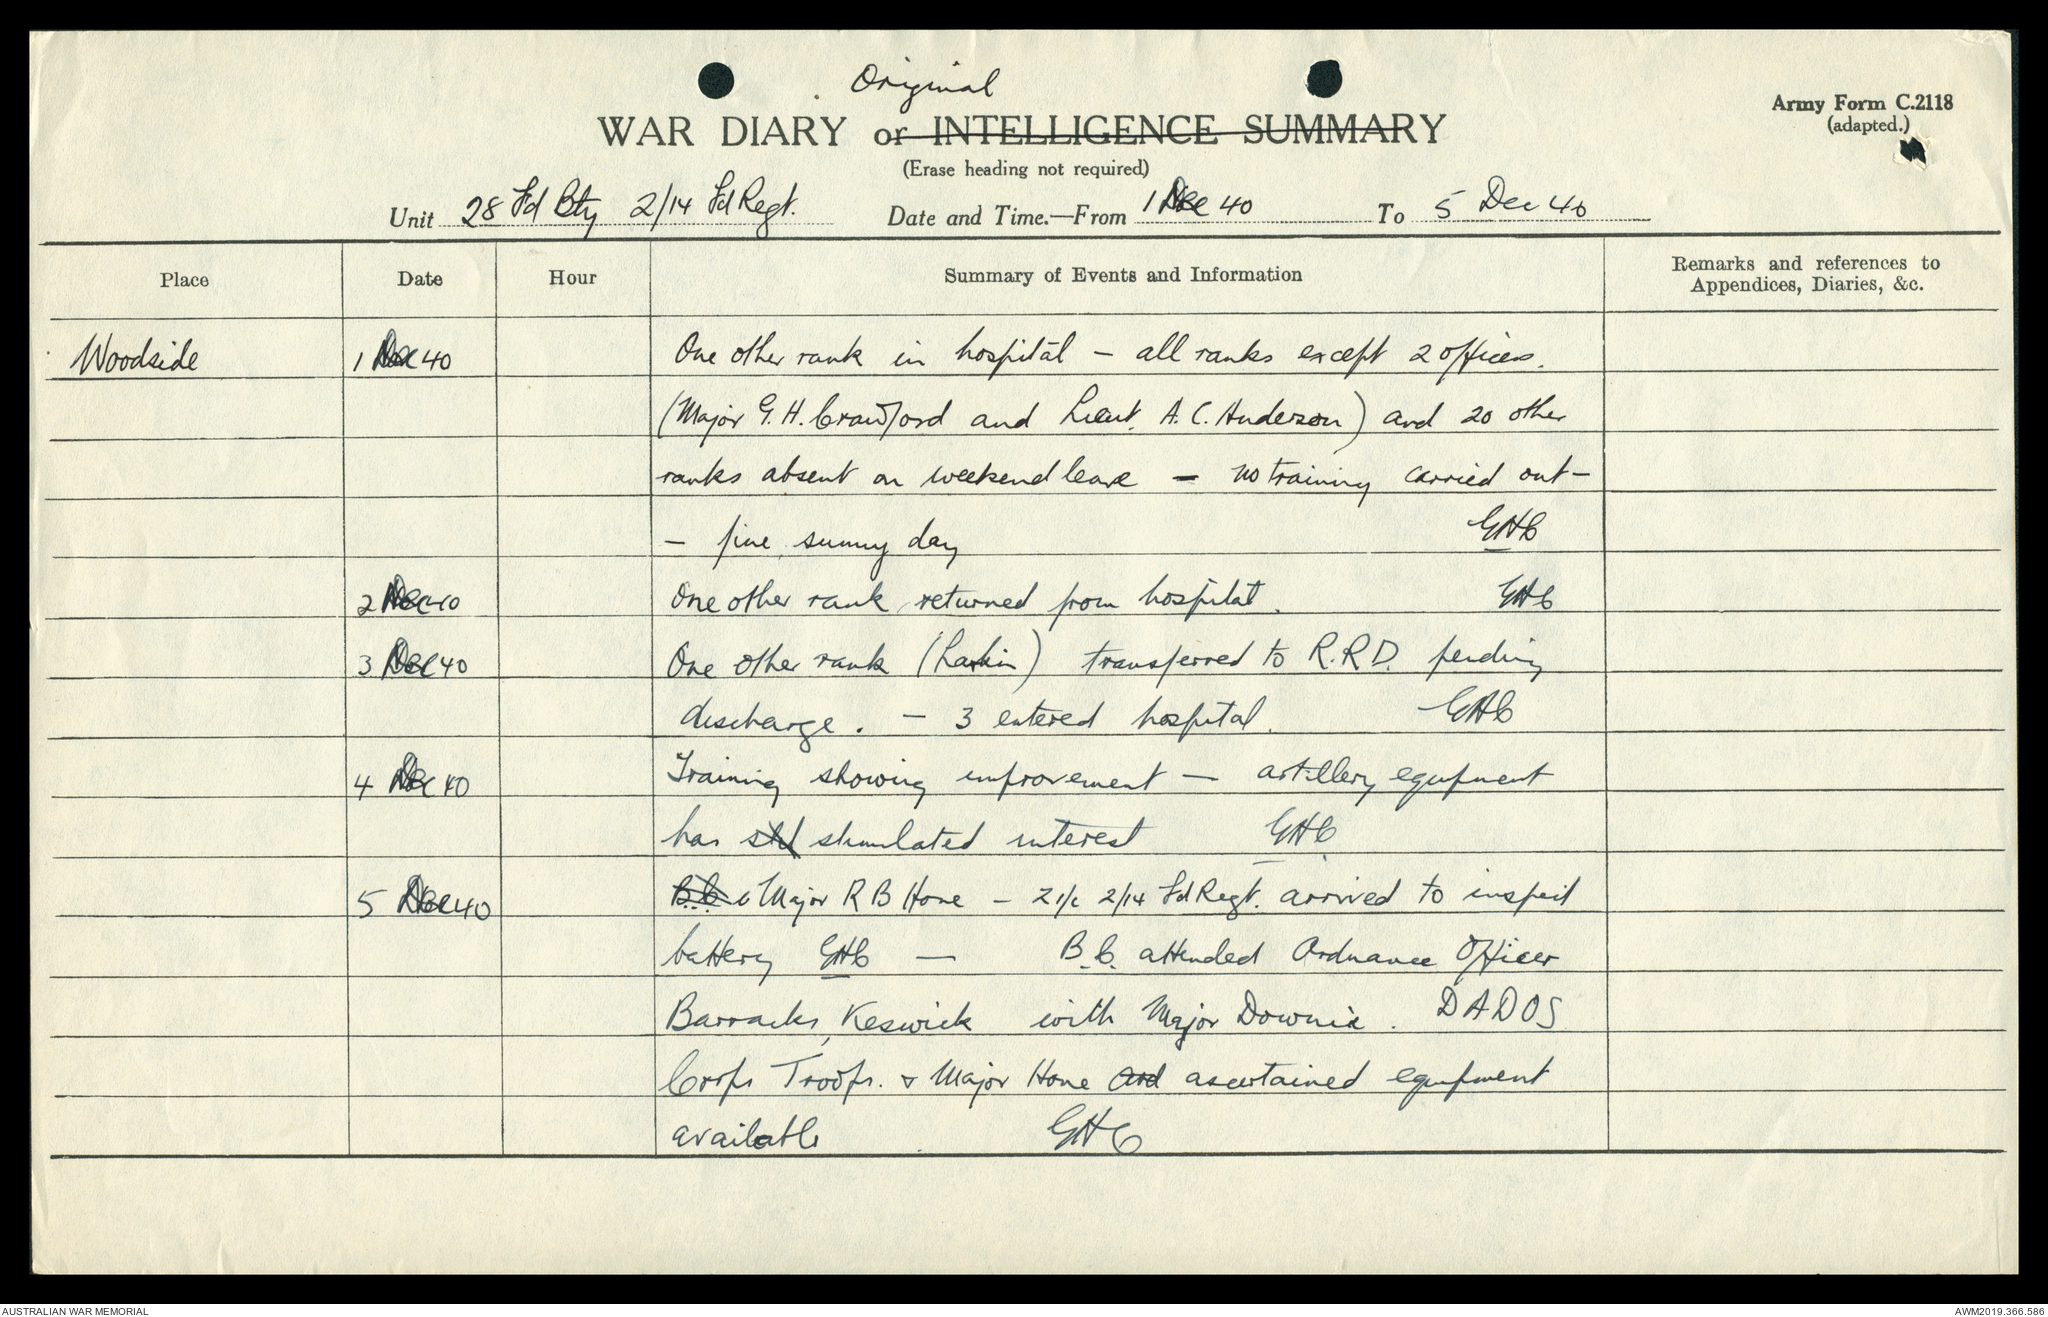 Original
Army Form C.2118
(adapted.)
WAR DIARY or INTELLIGENCE SUMMARY
(Erase heading not required)
Unit 28 Fd Bty 2/14 Fd Regt. Date and Time.—From 1 Dec 40 To 5 Dec 40
Place Date Hour Summary of Events and Information Remarks and references to
Appendices, Diaries, &c.
Woodside 1 Dec 40 One other rank in hospital – all ranks except 2 officers.
(Major G.H. Crawford and Lieut. A.C. Anderson) and 20 other
ranks absent on weekend leave – no training carried out –
– fine, sunny day GHC
2 Dec 40 One other rank returned from hospital. GHC
3 Dec 40 One other rank (Larkin) transferred to R.R.D. pending
discharge. – 3 entered hospital. GHC
4 Dec 40 Training showing improvement – artillery equipment
has stimulated interest GHC
5 Dec 40 B.C. Major R B Hone – 2 i/c 2/14 Fd Regt. arrived to inspect
battery GHC — B.C. attended Ordnance Officer
Barracks, Keswick with Major Downie. DADOS
Corps Troops. & Major Hone and ascertained equipment
available GHC
AUSTRALIAN WAR MEMORIAL AWM2019.366.586